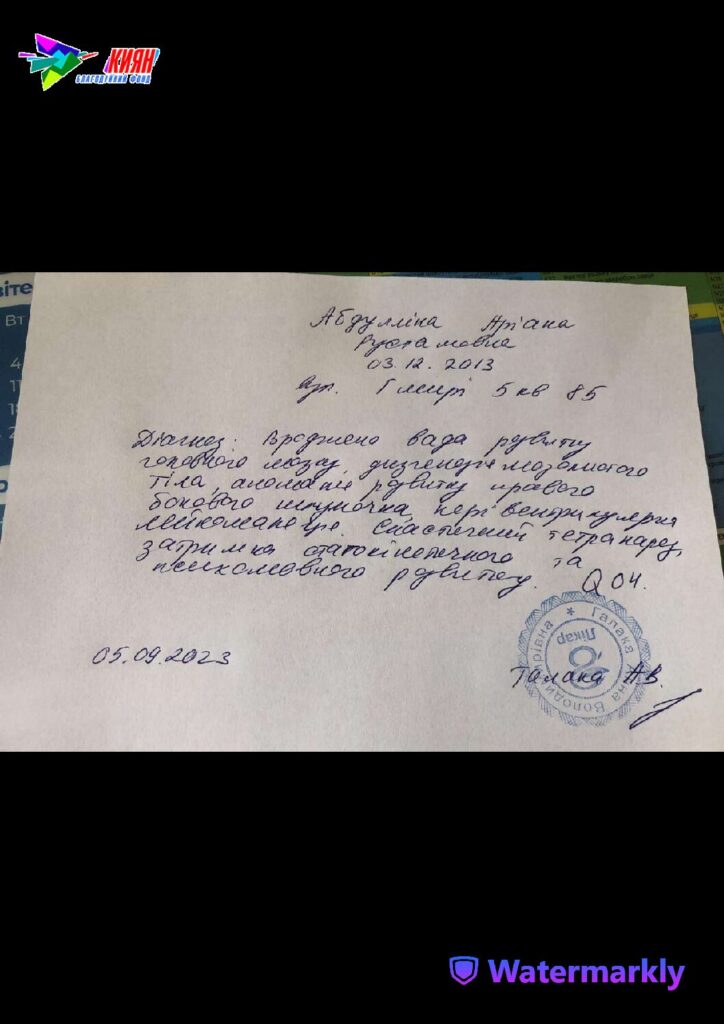 КИЯН
БЛАГОДІЙНИЙ ФОНД
віте
Вт
Абдулліна Аріана
Рустамовна
03.12.2013
вул. Гмирі 5 кв 85
Діагноз: Вроджена вада розвитку
головного мозку, дизгенезія мозолистого
тіла, аномалія розвитку правого
бокового шлуночка, перівентрикулярна
лейкомаляція. Спастичний тетрапарез,
затримка статокінетичного та
психомовного розвитку. Q04.
05.09.2023
Галака А.В.
Галака
Володимирівна
Лікар
Watermarkly